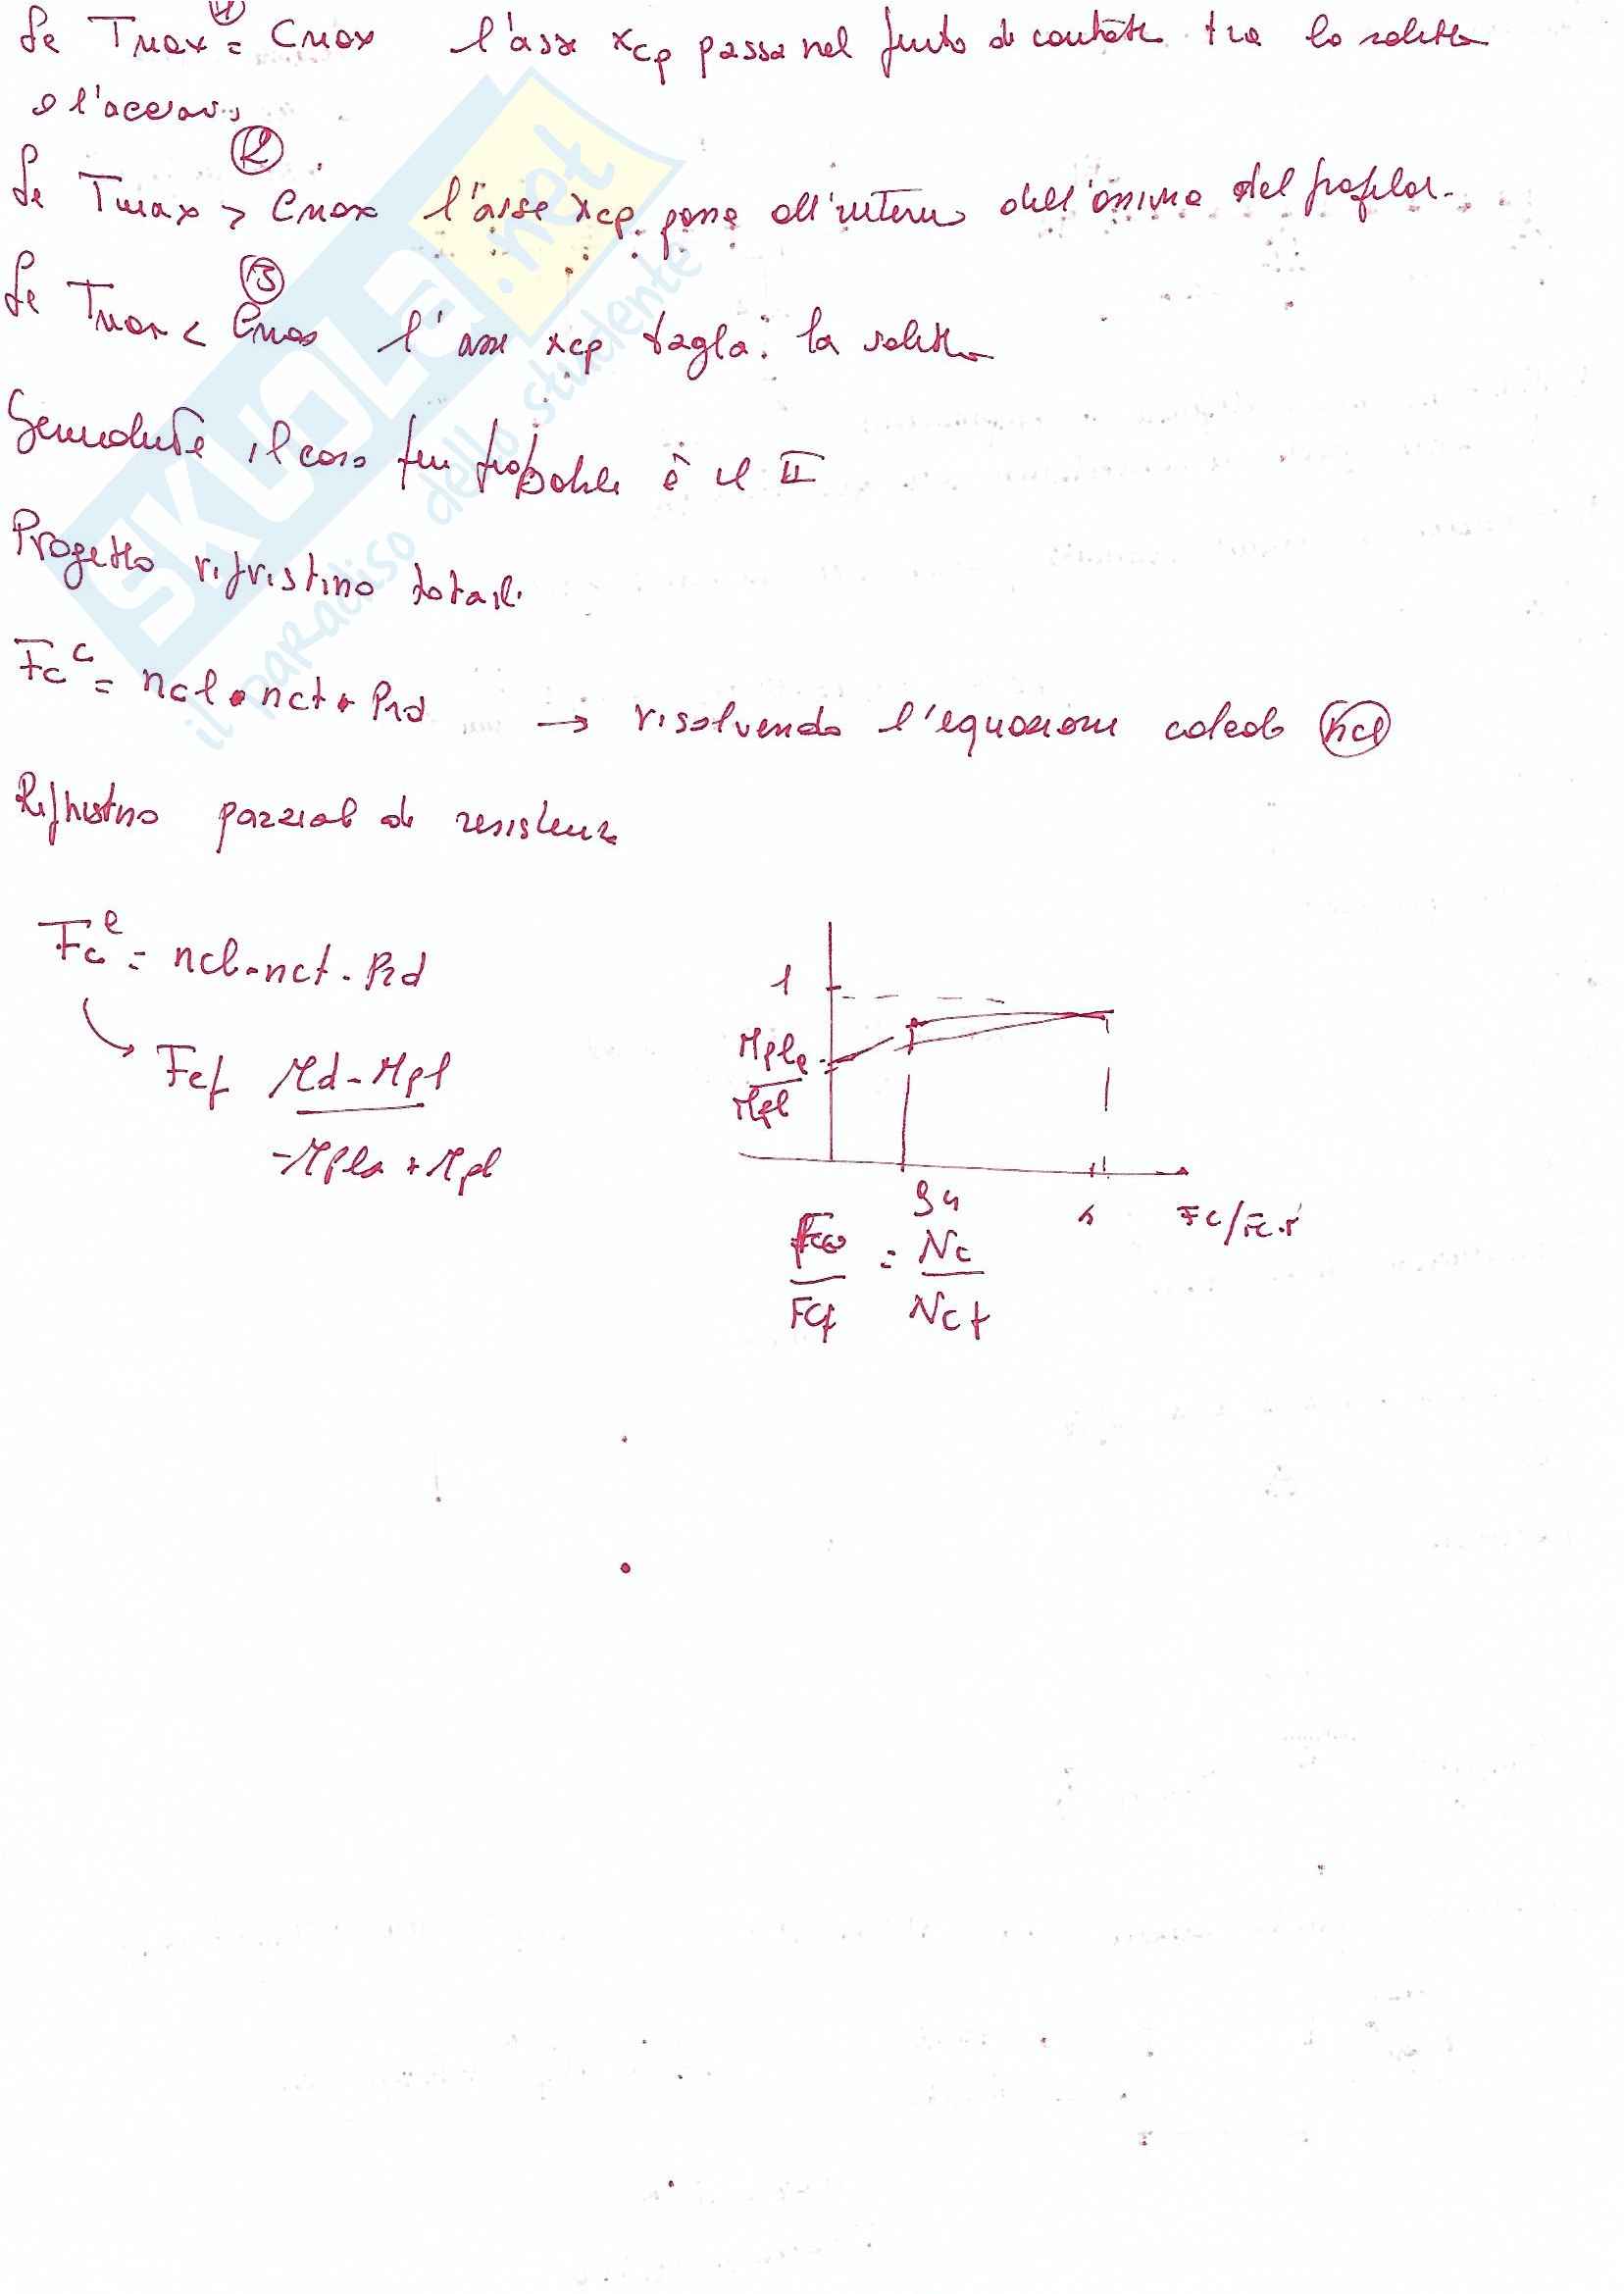 Se Tmax = Cmax l'asse xcp passa nel punto di contatto tra la soletta
1
e l'acciaio
2
Se Tmax > Cmax l'asse xcp passa all'interno dell'anima del profilo.
3
Se Tmax < Cmax l'asse xcp taglia la soletta
Generalmente il caso più probabile è il II
Progetto ripristino totale
Fc^c = ncl • nct • Prd → risolvendo l'equazione calcolo ncl
Ripristino parziale di resistenza
Fc^e = ncl · nct · Prd
Fcf Md - Mpl
-Mpla + Mpl
1
Mpla
Mpl
Fc/Fcf
= Nc
Fcf Ncf
SKUOLA.net
il paradiso dello studente